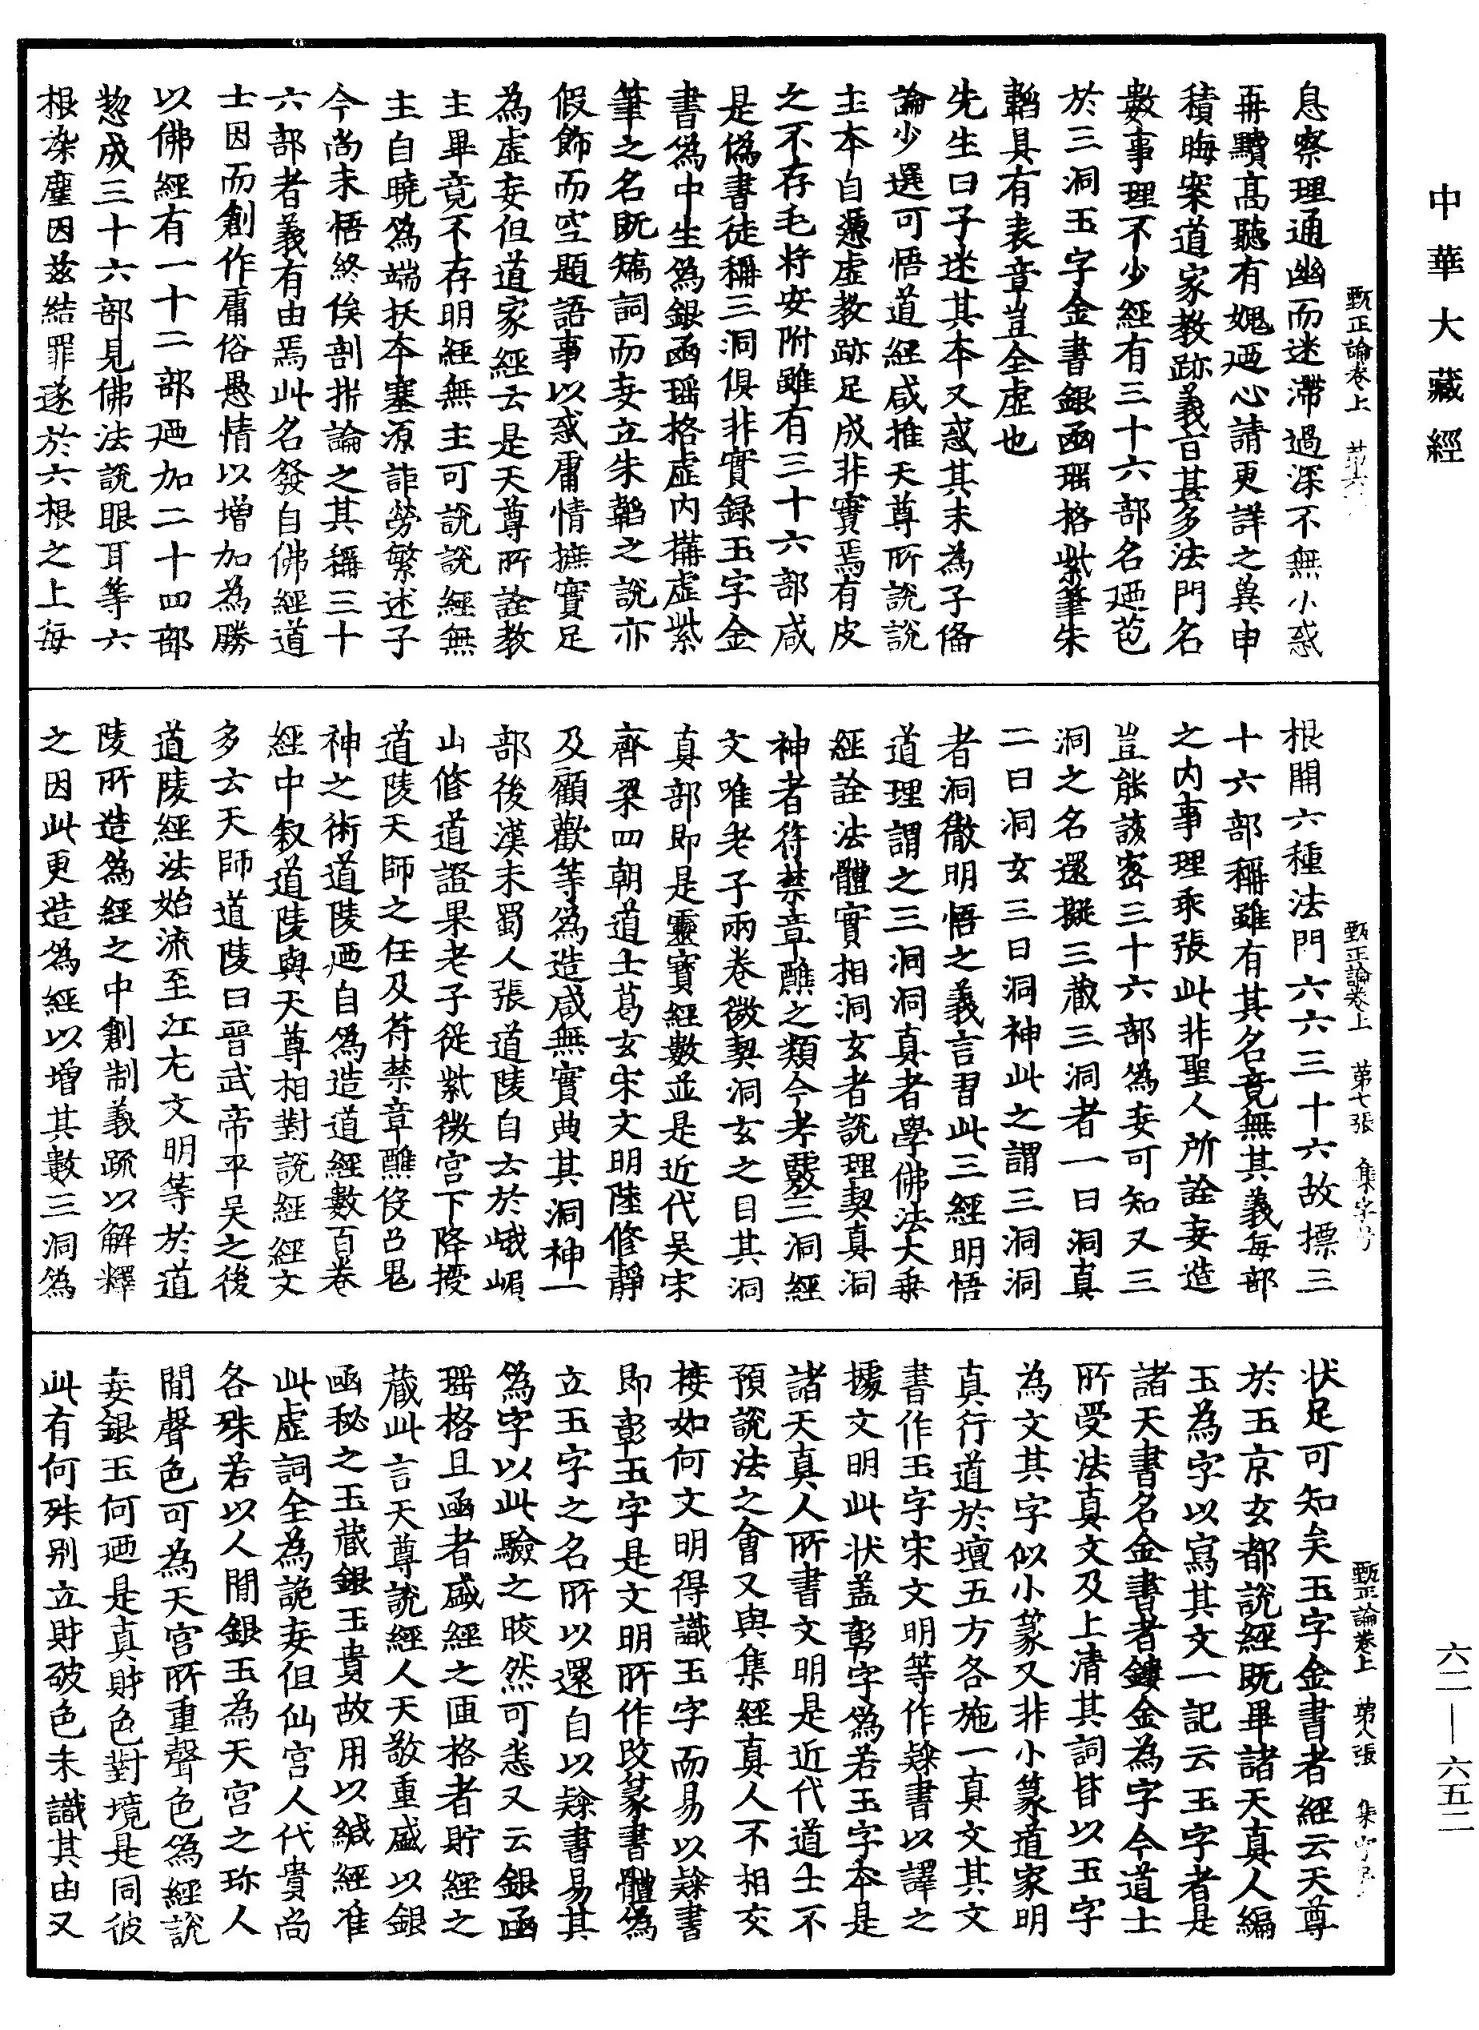 中華大藏經
甄正論卷上　第六
息察理通幽而迷滯過深不無小惑
再黷高聽有媿廼心請更詳之異申
積晦案道家教跡義旨甚多法門名
數事理不少經有三十六部名廼苞
於三洞玉字金書銀函瑶格紫筆朱
韜具有表章豈全虛也
先生曰子迷其本又惑其末為子俻
論少選可悟道經咸推天尊所說說
主本自憑虛教跡足成非實焉有皮
之不存毛將安附雖有三十六部咸
是僞書徒稱三洞俱非實録玉字金
書爲中生爲銀函瑶格虛內構虛紫
筆之名既矯詞而妄立朱韜之說亦
假飾而空題語事以惑庸情摭實足
為虛妄但道家經云是天尊所詮教
主畢竟不存明經無主可說說經無
主自曉爲端扶本塞源詎勞繁述子
今尚未悟終俟剖析論之其稱三十
六部者義有由焉此名發自佛經道
士因而創作庸俗愚情以增加為勝
以佛經有一十二部廼加二十四部
惣成三十六部見佛法說眼耳等六
根染塵因兹結罪遂於六根之上每
甄正論卷上　第七張　集字号
根開六種法門六六三十六故標三
十六部稱雖有其名竟無其義每部
之内事理乖張此非聖人所詮妄造
豈能該密三十六部爲妄可知又三
洞之名還擬三藏三洞者一曰洞真
二曰洞玄三曰洞神此之謂三洞洞
者洞徹明悟之義言習此三經明悟
道理謂之三洞洞真者學佛法大乗
經詮法體實相洞玄者說理契真洞
神者符禁章醮之類今考覈三洞經
文唯老子兩卷微契洞玄之目其洞
真部即是靈寳經數並是近代吴宋
齊梁四朝道士葛玄宋文明陸修靜
及顧歡等爲造咸無實典其洞神一
部後漢末蜀人張道陵自云於峨嵋
山修道證果老子從紫微宮下降授
道陵天師之任及符禁章醮役召鬼
神之術道陵廼自爲造道經數百卷
經中叙道陵與天尊相對說經經文
多云天師道陵曰晉武帝平吴之後
道陵經法始流至江尢文明等於道
陵所造爲經之中創制義䟽以解釋
之因此更造爲經以增其數三洞爲
甄正論卷上　第八張　集字号
状足可知矣玉字金書者經云天尊
於玉京玄都說經既畢諸天真人編
玉為字以寫其文一記云玉字者是
諸天書名金書者鏤金為字今道士
所受法真文及上清其詞皆以玉字
為文其字似小篆又非小篆道家明
真行道於壇五方各施一真文其文
書作玉字宋文明等作𨽻書以譯之
據文明此状盖彰字爲若玉字本是
諸天真人所書文明是近代道士不
預說法之會又與集經真人不相交
接如何文明得識玉字而易以𨽻書
即彰玉字是文明所作改篆書體爲
立玉字之名所以還自以𨽻書易其
爲字以此驗之皎然可悉又云銀函
瑶格且函者盛經之匣格者貯經之
藏此言天尊說經人天敬重盛以銀
函秘之玉藏銀玉貴故用以緘經准
此虛詞全為詭妄但仙宮人代貴尚
各殊若以人間銀玉為天宮之珎人
間聲色可為天宮所重聲色爲經說
妄銀玉何廼是真財色對境是同彼
此有何殊别立財破色未識其由又
六二—六五二